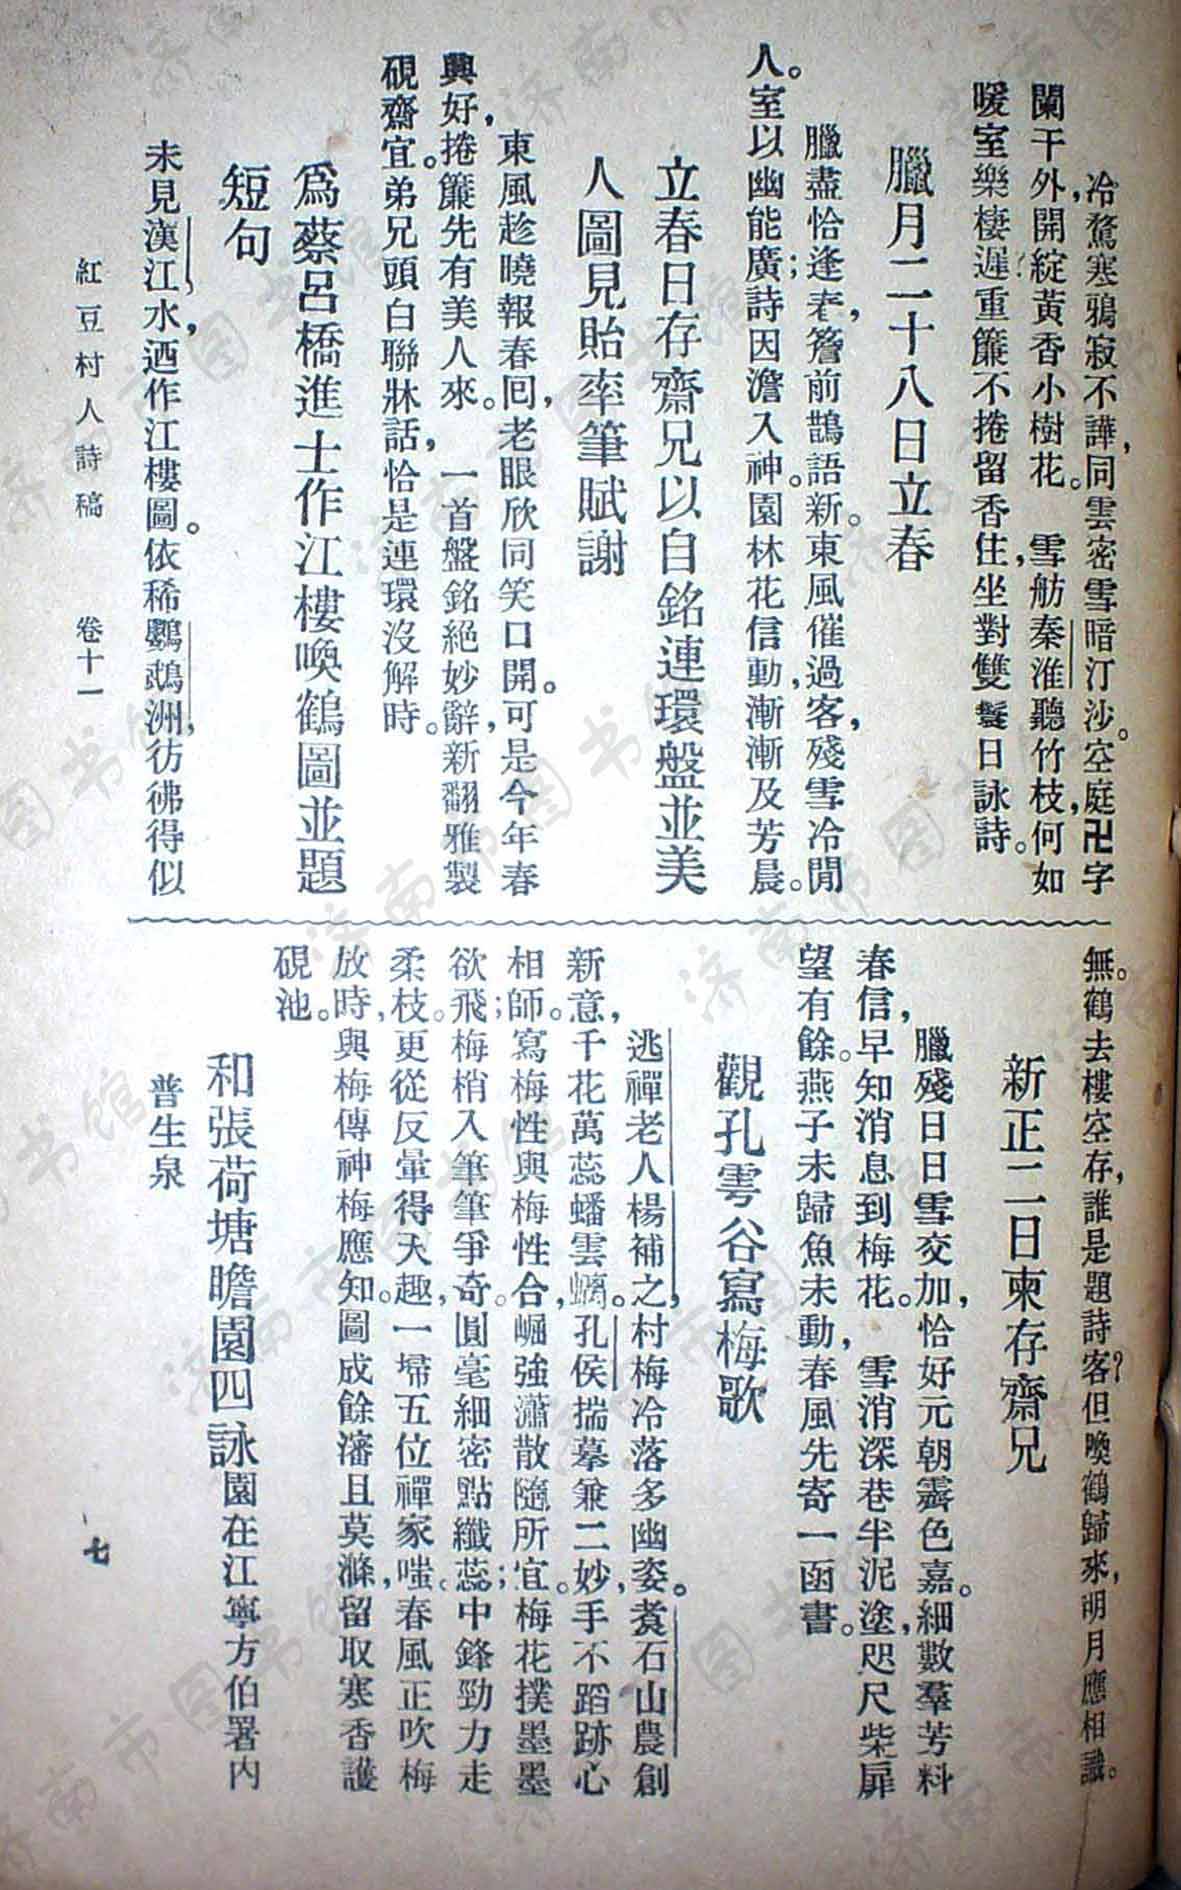 冷鶩寒鴉寂不譁，同雲密雪暗汀沙。空庭卍字
闌干外，開綻黃香小樹花。　雪舫秦淮聽竹枝，何如
暖室樂棲遲？重簾不捲留香住，坐對雙鬟日詠詩。
臘月二十八日立春
臘盡恰逢春，簷前鵲語新。東風催過客，殘雪冷閒
人。室以幽能廣；詩因澹入神。園林花信動，漸漸及芳晨。
立春日存齋兄以自銘連環盤並美
人圖見貽率筆賦謝
東風趁曉報春回，老眼欣同笑口開。可是今年春
興好，捲簾先有美人來。　一首盤銘絕妙辭，新翻雅製
硯齋宜。弟兄頭白聯牀話，恰是連環沒解時。
爲蔡呂橋進士作江樓喚鶴圖並題
短句
未見漢江水，迺作江樓圖。依稀鸚鵡洲，彷彿得似
無。鶴去樓空存，誰是題詩客？但喚鶴歸來，明月應相識。
新正二日柬存齋兄
臘殘日日雪交加，恰好元朝霽色嘉。細數羣芳料
春信，早知消息到梅花。　雪消深巷半泥塗，咫尺柴扉
望有餘。燕子未歸魚未動，春風先寄一函書。
觀孔雩谷寫梅歌
逃禪老人楊補之，村梅冷落多幽姿。煑石山農創
新意，千花萬蕊蟠雲螭。孔侯揣摹兼二妙，手不蹈跡心
相師。寫梅性與梅性合，崛強瀟散隨所宜。梅花撲墨墨
欲飛；梅梢入筆筆爭奇。圓毫細密點纖蕊；中鋒勁力走
柔枝。更從反暈得天趣，一埽五位禪家嗤。春風正吹梅
放時，與梅傳神梅應知。圖成餘瀋且莫滌，留取寒香護
硯池。
和張荷塘瞻園四詠園在江寧方伯署內
普生泉
紅豆村人詩稿　卷十一　七